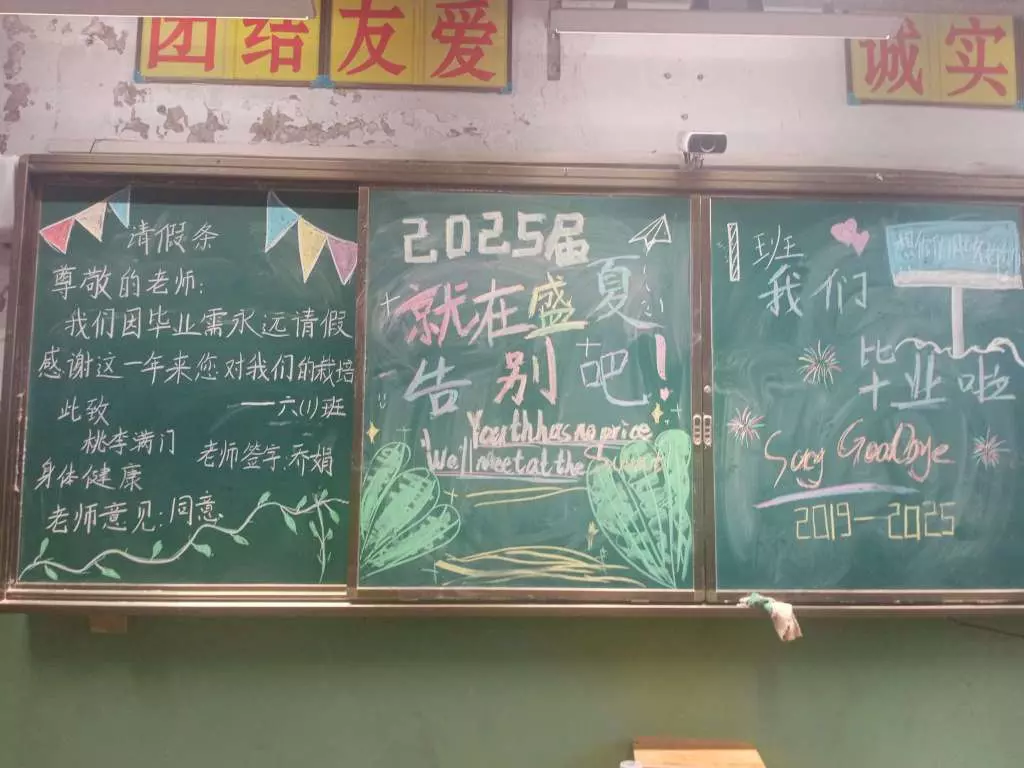 团结友爱
诚实
请假条
尊敬的老师:
我们因毕业需永远请假
感谢这一年来您对我们的栽培
此致
——六(1)班
桃李满门
身体健康
老师签字:乔娟
老师意见:同意
2025届
就在盛夏
告别吧!
Youth has no price
We'll meet at the
1班
我们
毕业啦
Say GoodBye
2019—2025